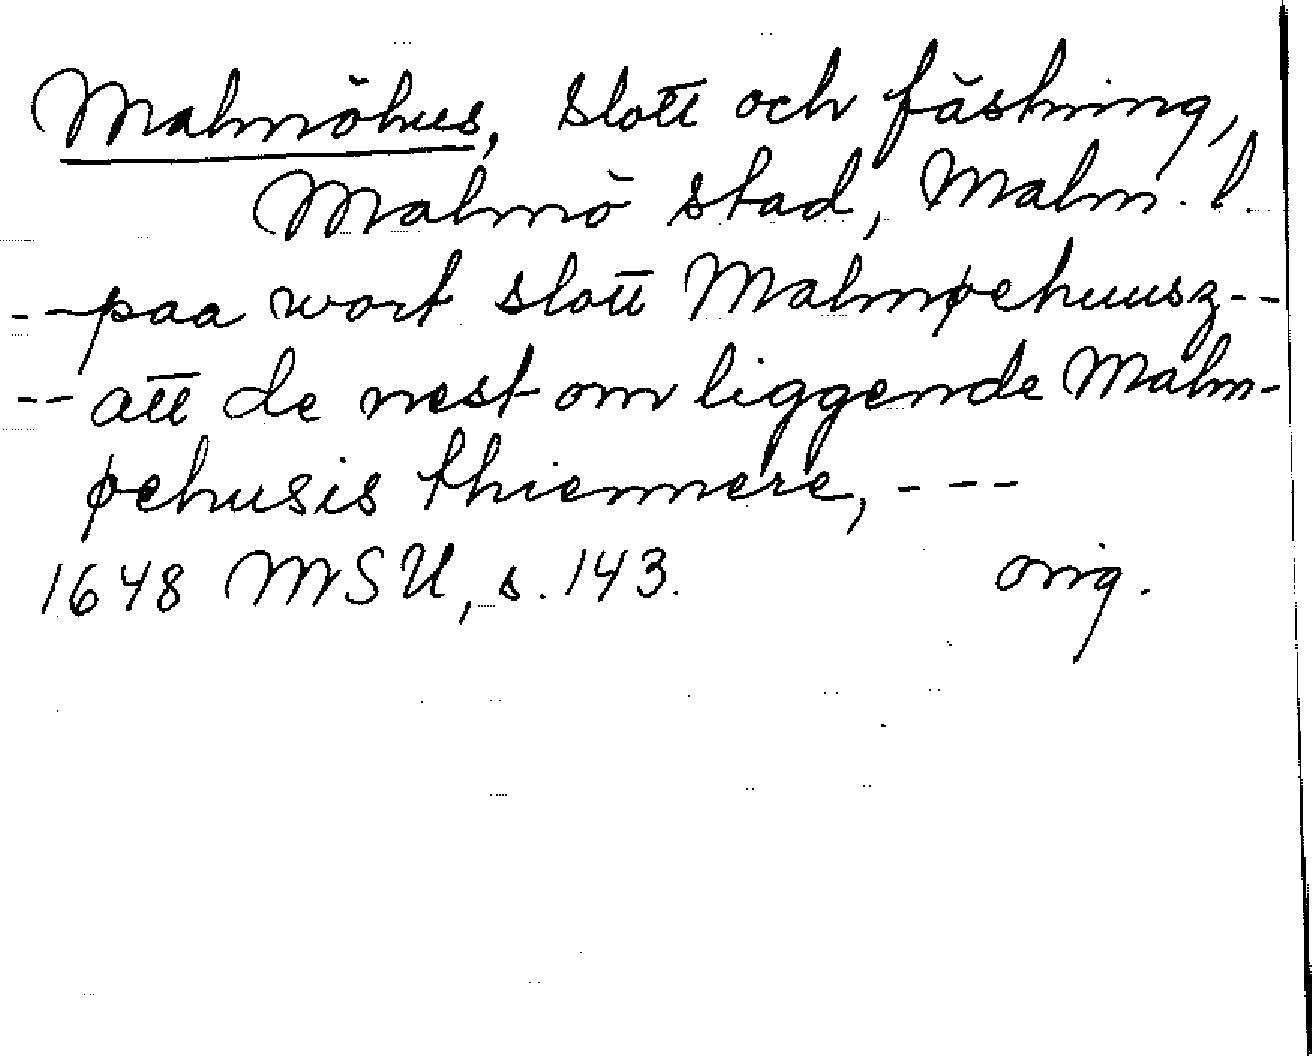 Malmöhus, slott och fästning,
Malmö stad, Malm. l.
- - paa wort slott Malmøehuusz - -
- - att de nest om liggende Malm-
øehusis thiennere, - - -
1648 MSU, s. 143. orig.